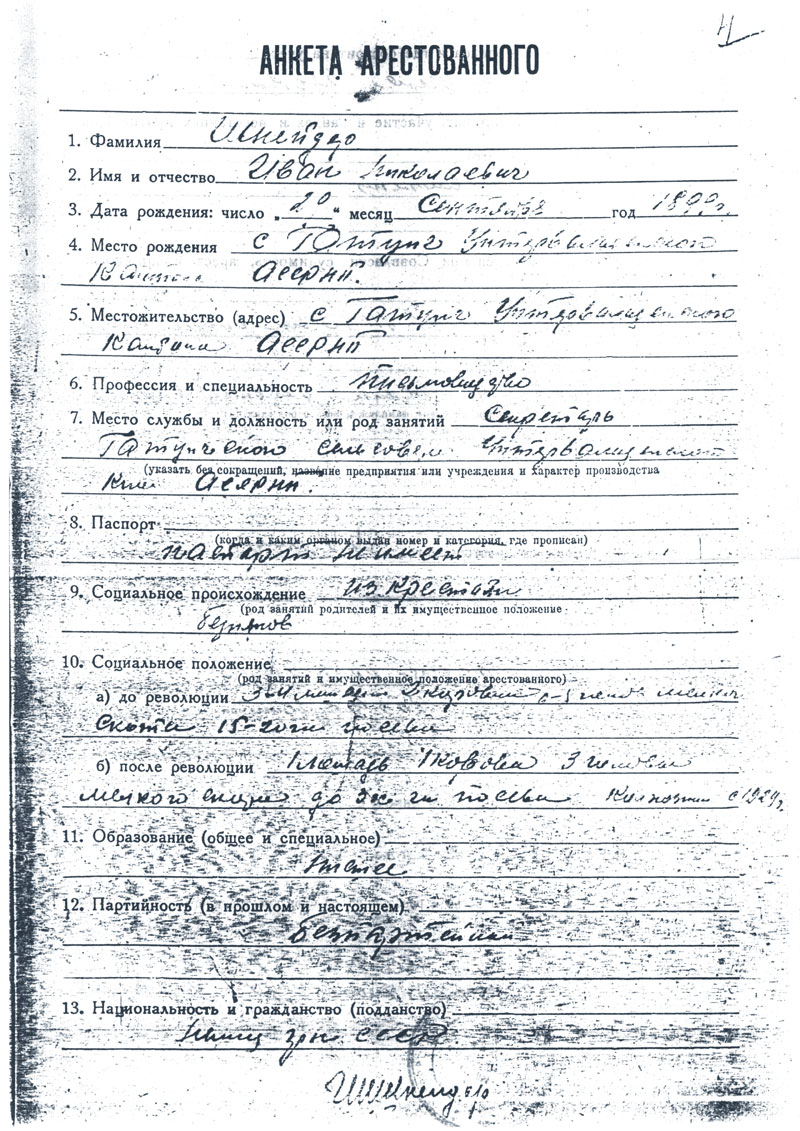 4
АНКЕТА АРЕСТОВАННОГО
1. Фамилия Шнейдер
2. Имя и отчество Иван Николаевич
3. Дата рождения: число „20“ месяц Сентября год 1899 г.
4. Место рождения с Гатунг Унтервалденского
Кантона АССРНП.
5. Местожительство (адрес) с Гатунг Унтервалденского
Кантона АССРНП
6. Профессия и специальность письмоводство
7. Место службы и должность или род занятий Секретарь
Гатунгского сельсовета Унтервалденского
(указать без сокращений, название предприятия или учреждения и характер производства
АССРНП.
8. Паспорт
(когда и каким органом выдан номер и категория, где прописан)
паспорт не имеет
9. Социальное происхождение из крестьян
(род занятий родителей и их имущественное положение
10. Социальное положение
(род занятий и имущественное положение арестованного)
а) до революции 3-4 лошади 2 коровы
скота 15-20 га посева
б) после революции 1 лошадь 1 корова 3 головы
мелкого скота до га посева Колхозник с 1929 г.
11. Образование (общее и специальное)
12. Партийность (в прошлом и настоящем)
беспартейный
13. Национальность и гражданство (подданство)
немец гр-н СССР